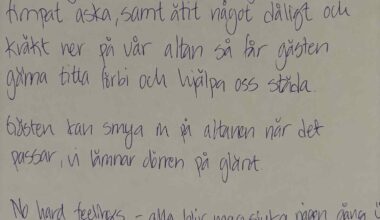 fimpat aska, samt ätit något dåligt och
kräkt ner på vår altan så får gästen
gärna titta förbi och hjälpa oss städa.
Gästen kan smyga in på altanen när det
passar, vi lämnar dörren på glänt.
No hard feelings - alla blir magsjuka någon gång